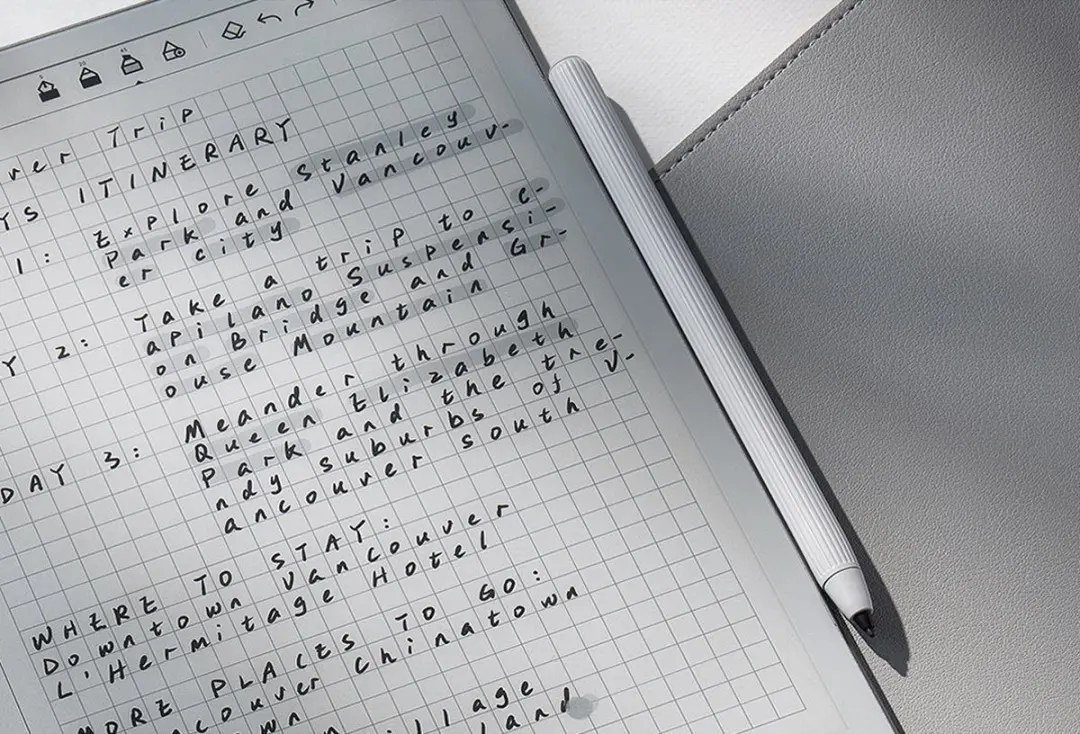 ver Trip
YS ITINERARY
1: Explore Stanley
Park and Vancouv-
er city
Y 2: Take a trip to C-
apilano Suspensi-
on Bridge and Gr-
ouse Mountain
DAY 3: Meander through
Queen Elizabeth
Park and the tre-
ndy suburbs of V-
ancouver south
WHERE TO STAY:
Downtown Vancouver
L'Hermitage Hotel
MORE PLACES TO GO:
couver Chinatown
own
illage
land